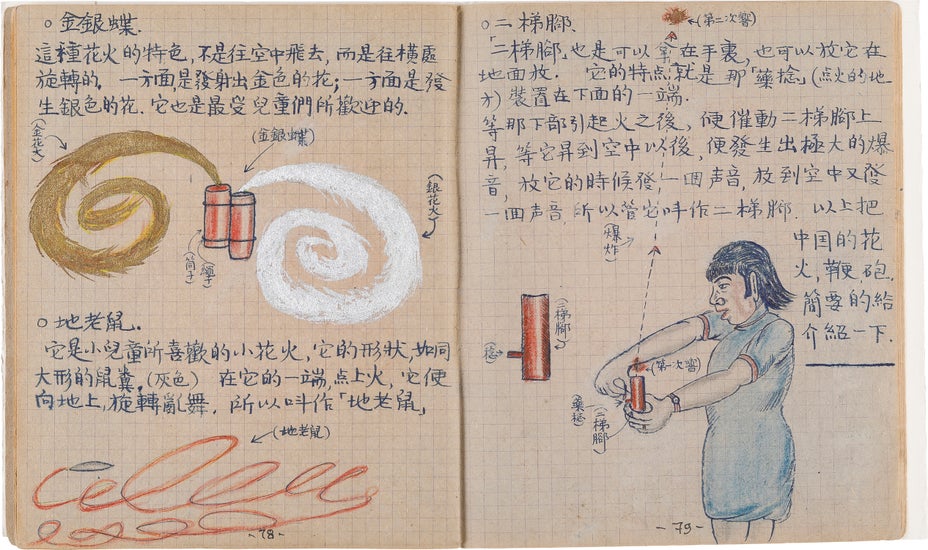 ○金銀蝶.
這種花火的特色,不是往空中飛去,而是往橫處
旋轉的. 一方面是發射出金色的花;一方面是發
生銀色的花.它也是最受兒童們所歡迎的.
(金花火)
(金銀蝶)
(銀花火)
(筒子)
(繩子)
○地老鼠.
它是小兒童所喜歡的小花火,它的形狀,如同
大形的鼠糞.(灰色) 在它的一端,点上火,它便
向地上,旋轉亂舞. 所以叫作「地老鼠」
(地老鼠)
-78-
○二梯腳.
(第二次響)
「二梯腳」也是可以拿在手裏,也可以放它在
地面放. 它的特点,就是那「藥捻」(点火的地
方)裝置在下面的一端.
等那下部引起火之後,便催動二梯腳上
昇,等它昇到空中以後,便發生出極大的爆
音,放它的時候發一囬声音,放到空中又發
一囬声音.所以管它叫作二梯腳. 以上把
中囯的花
火,鞭,砲.
簡要的給
介紹一下.
(爆炸)
(二梯腳)
(捻)
(第一次響)
(藥捻)
(二梯腳)
-79-